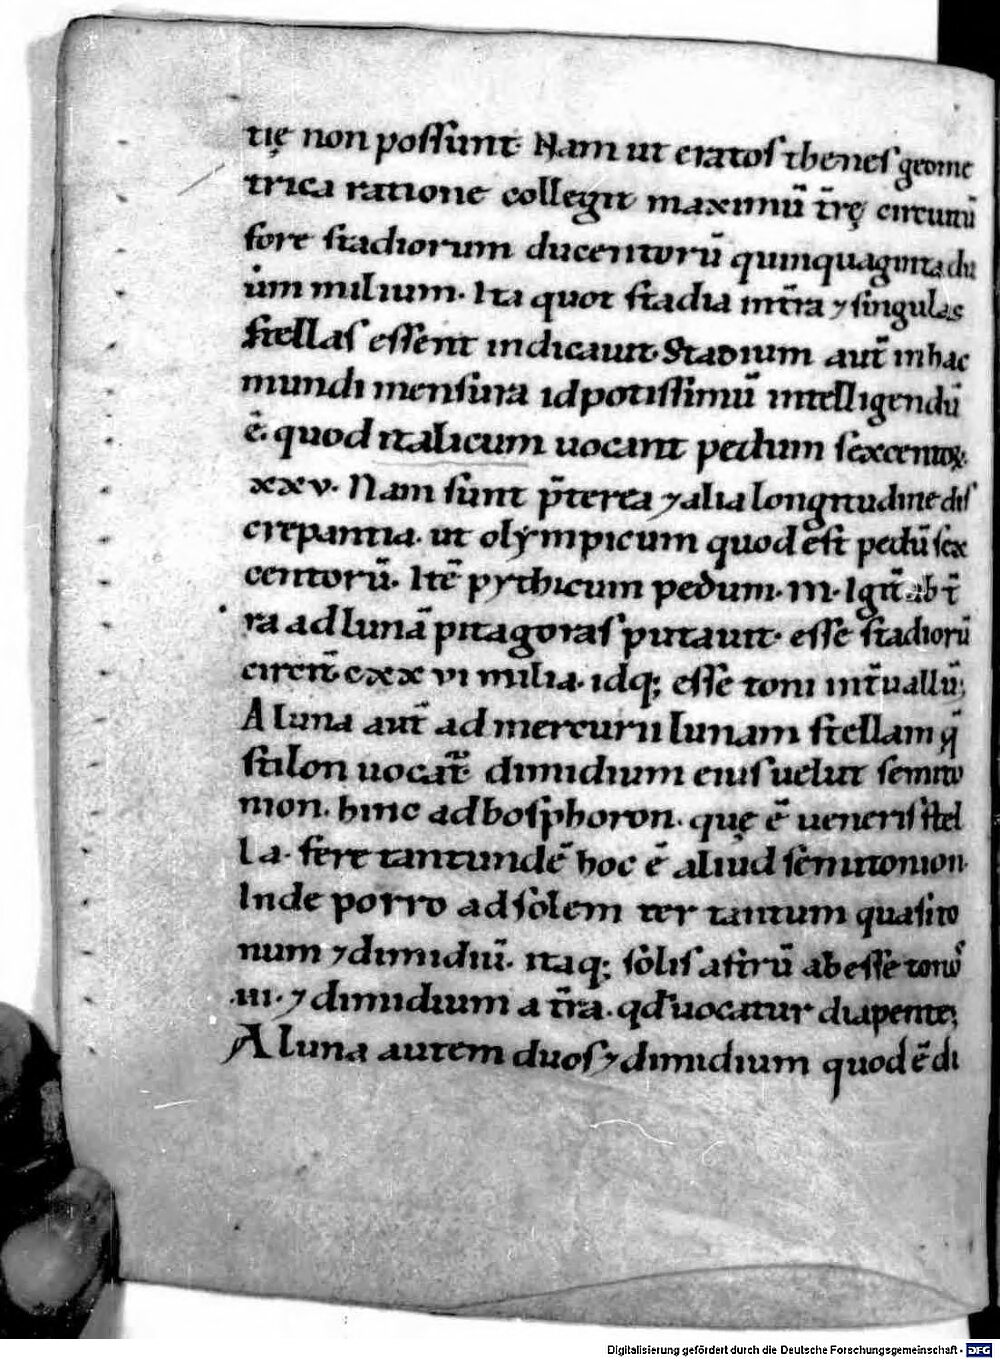 tię non possunt. Nam ut eratosthenes geome
trica ratione collegit maximū tr̄ę circuitū
fore stadiorum ducentorū quinquaginta du
um milium. Ita quot stadia int̄ra ⁊ singulas
stellas essent indicauit. Stadium aut̄ in hac
mundi mensura id potissimū intelligendū
ē. quod italicum uocant pedum sexcentoꝝ.
xxv. Nam sunt p̄terea ⁊ alia longitudine dis
crepantia. ut olẏmpicum quod est pedū sex
centorū. Itē pythicum pedum. M. Igit̄ ab t̄
ra ad lunā pitagoras putauit. esse stadiorū
circit̄ cxx vi milia. idq; esse toni int̄uallū;
A luna aut̄ ad mercurii lunam stellam q̄
stilon uocat̄. dimidium eius uelut semito
nion. hinc ad hosphoron. quę ē ueneris stel
la. fere tantundē hoc ē aliud semitonion.
Inde porro ad solem ter tantum quasi to
num ⁊ dimidiū. itaq; solis astrū abesse tonoˢ
.iii. ⁊ dimidium a t̄ra. qđ uocatur diapente;
A luna autem duos ⁊ dimidium quod ē di
Digitalisierung gefördert durch die Deutsche Forschungsgemeinschaft - DFG